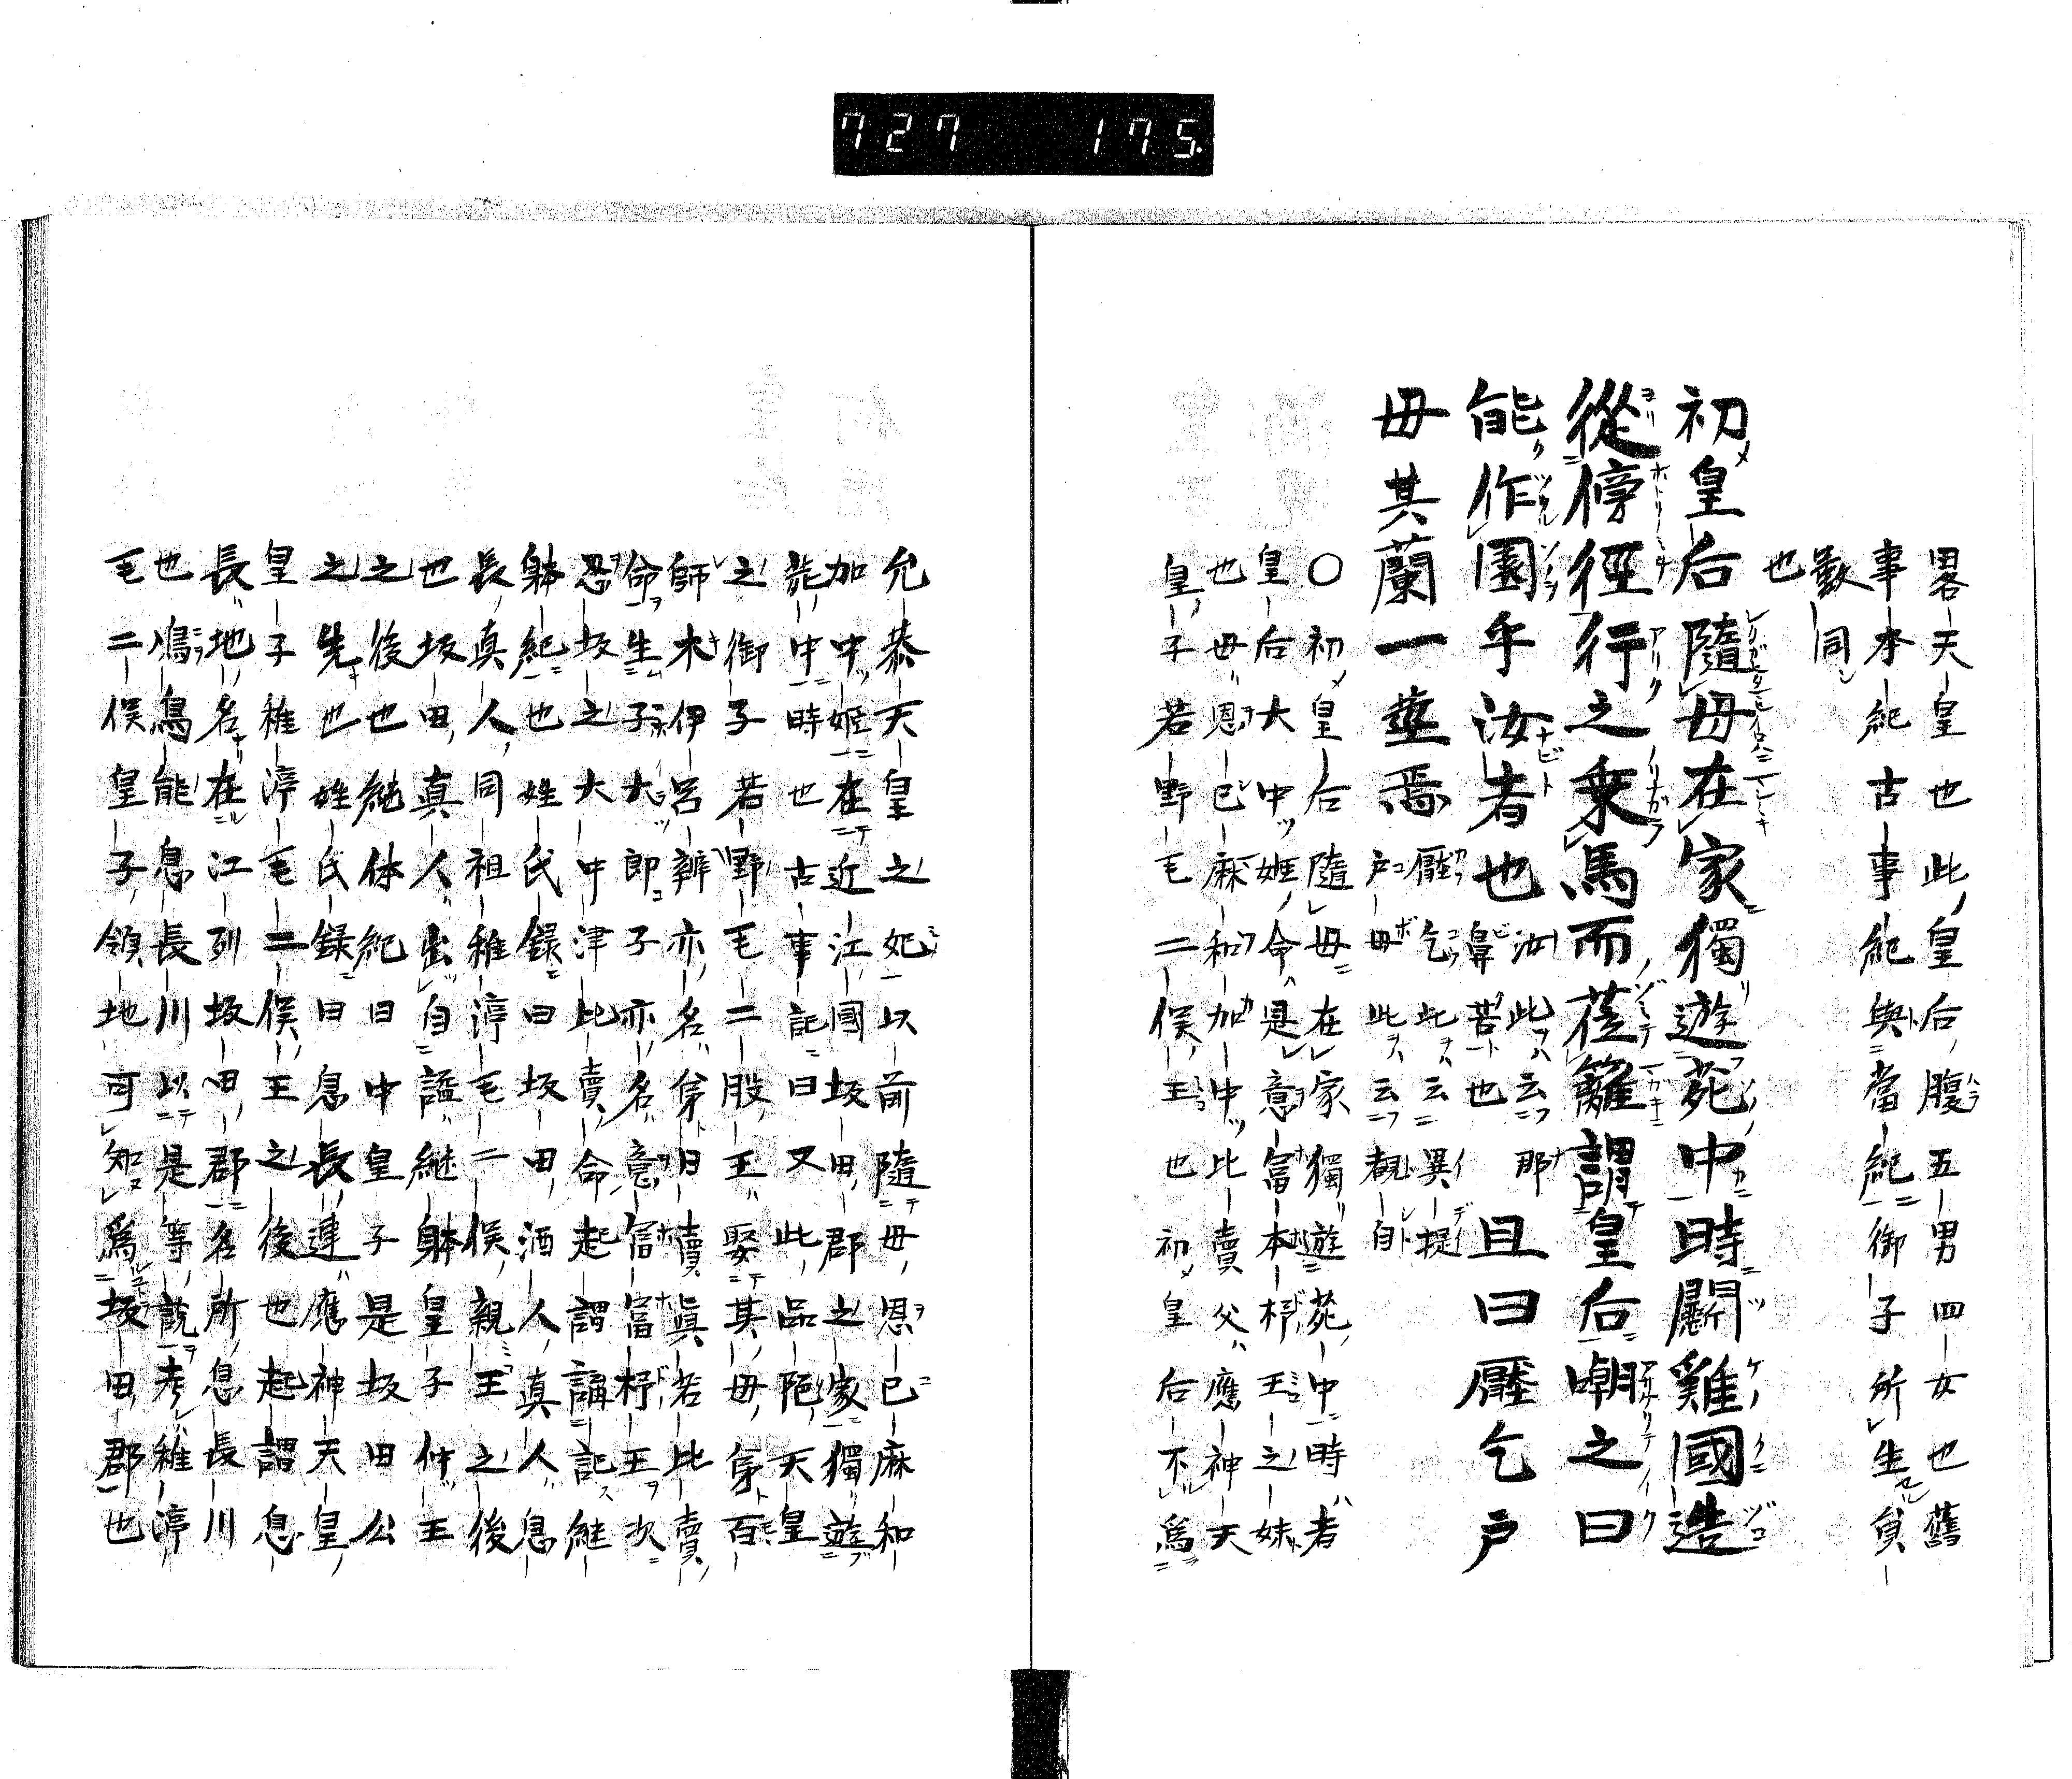 727 175.
畧天皇也此皇后腹五男四女也舊
事本紀古事紀與當紀御子所生員
數同
也
初皇后隨母在家獨遊苑中時鬪雞國造
從傍徑行之乗馬而莅籬謂皇后嘲之曰
能作園乎汝者也 汝此云那鼻苦也 且曰壓乞戸
毋其蘭一莖焉 壓乞此云異提戸毋此云覩自
〇初皇后隨母在家獨遊苑中時者
皇后大中姫命是意富本杼王之妹
也母恩己麻和加中比賣父應神天
皇子若野毛二俣王也初皇后不爲
允恭天皇之妃以前隨母恩己麻和
加中姫在近江國坂田郡之家獨遊
能中時也古事記曰又此品陁天皇
之御子若野毛二股王娶其母弟百
師木伊呂辨亦名弟日賣眞若比賣
命生子大郎子亦名意富富杼王次
忍坂之大中津比賣命起謂講記継
躰紀也姓氏録曰坂田酒人真人息
長真人同祖稚渟毛二俣親王之後
也坂田真人出自謚継躰皇子仲王
之後也継体紀曰中皇子是坂田公
之先也姓氏録曰息長連應神天皇
皇子稚渟毛二俣王之後也起謂息
長地名在江列坂田郡名所息長川
也鳰鳥能息長川以是等説考稚渟
毛二俣皇子領地可知爲坂田郡也